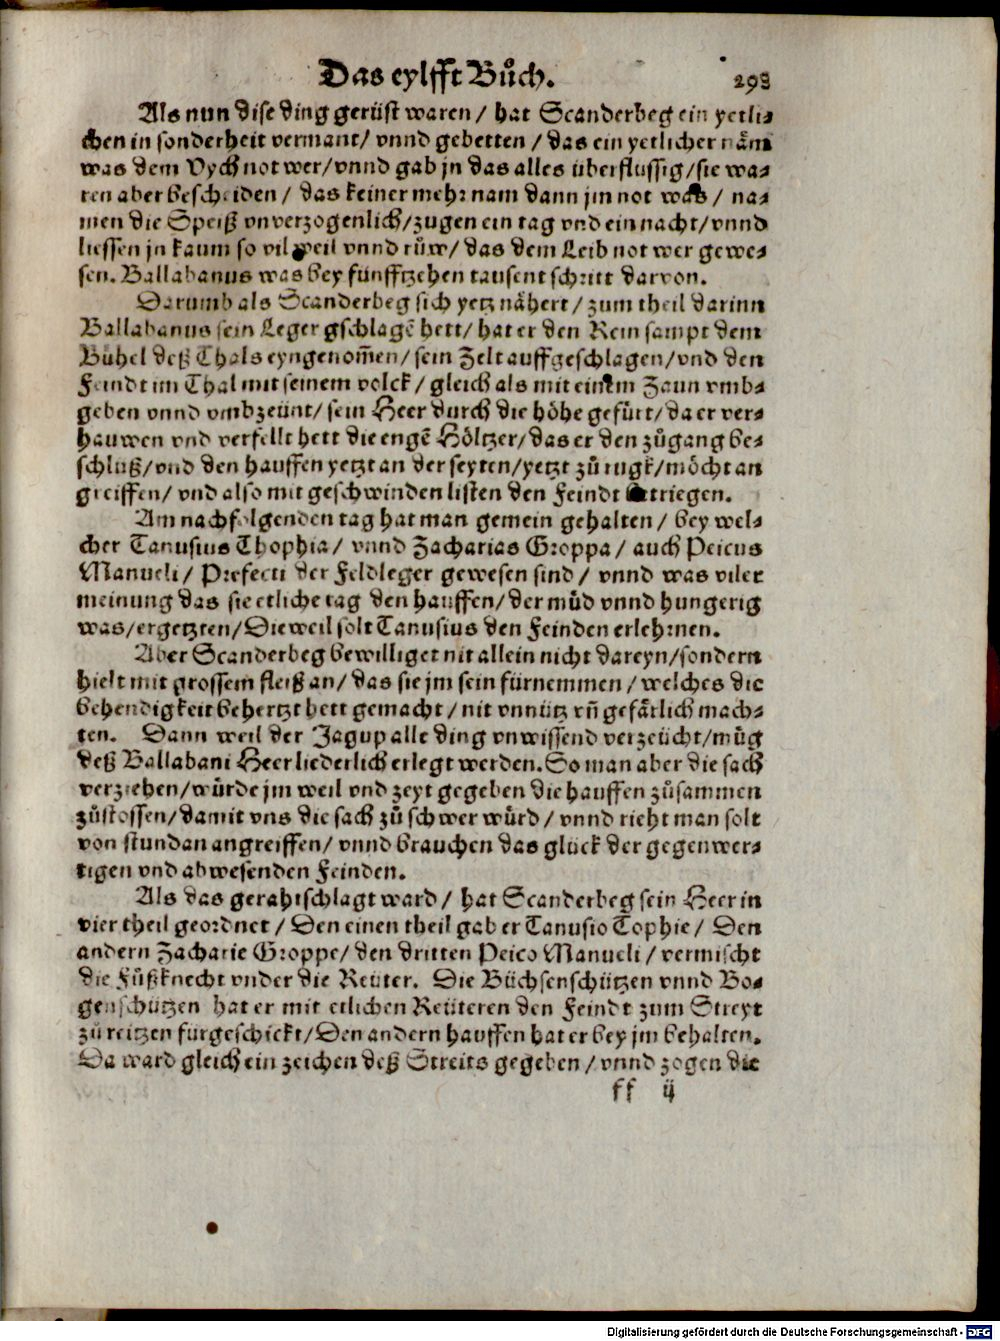 Das eylfft Bůch. 293
Als nun dise ding gerüst waren / hat Scanderbeg ein yetli-
chen in sonderheit vermant / vnnd gebetten / das ein yetlicher näm
was dem Vych not wer / vnnd gab jn das alles überflussig / sie wa-
ren aber bescheiden / das keiner mehr nam dann jm not was / na-
men die Speiß vnverzogenlich / zugen ein tag vnd ein nacht / vnnd
liessen jn kaum so vil weil vnnd růw / das dem Leib not wer gewe-
sen. Ballabanus was bey fünfftzehen tausent schritt darvon.
Darumb als Scanderbeg sich yetz nähert / zum theil darinn
Ballabanus sein Leger gschlagē hett / hat er den Rein sampt dem
Bühel deß Thals eyngenom̄en / sein Zelt auffgeschlagen / vnd den
Feindt im Thal mit seinem volck / gleich als mit einem Zaun vmb-
geben vnnd vmbzeünt / sein Heer durch die höhe gefürt / da er ver-
hauwen vnd verfellt hett die engē Höltzer / das er den zůgang be-
schluß / vnd den hauffen yetzt an der seyten / yetzt zů rugk / möcht an
greiffen / vnd also mit geschwinden listen den Feindt triegen.
Am nachfolgenden tag hat man gemein gehalten / bey wel-
cher Tanusius Thophia / vnnd Zacharias Groppa / auch Peicus
Manueli / Prefecti der Feldleger gewesen sind / vnnd was viler
meinung das sie etliche tag den hauffen / der müd vnnd hungerig
was / ergetzten / Die weil solt Tanusius den Feinden erlehrnen.
Aber Scanderbeg bewilliget nit allein nicht dareyn / sondern
hielt mit grossem fleiß an / das sie jm sein fürnemmen / welches die
behendigkeit behertzt hett gemacht / nit vnnütz vn̄ gefärlich mach-
ten. Dann weil der Jagup alle ding vnwissend verzeücht / müg
deß Ballabani Heer liederlich erlegt werden. So man aber die sach
verziehen / würde jm weil vnd zeyt gegeben die hauffen zůsammen
zůstossen / damit vns die sach zů schwer würd / vnnd rieht man solt
von stundan angreiffen / vnnd brauchen das glück der gegenwer-
tigen vnd abwesenden Feinden.
Als das gerahtschlagt ward / hat Scanderbeg sein Heer in
vier theil geordnet / Den einen theil gab er Tanusio Tophie / Den
andern Zacharie Groppe / den dritten Peico Manueli / vermischt
die Fůßknecht vnder die Reüter. Die Büchsenschützen vnnd Bo-
genschützen hat er mit etlichen Reüteren den Feindt zum Streyt
zů reitzen fürgeschickt / Den andern hauffen hat er bey jm behalten.
Da ward gleich ein zeichen deß Streits gegeben / vnnd zogen die
ff ij
Digitalisierung gefördert durch die Deutsche Forschungsgemeinschaft - DFG